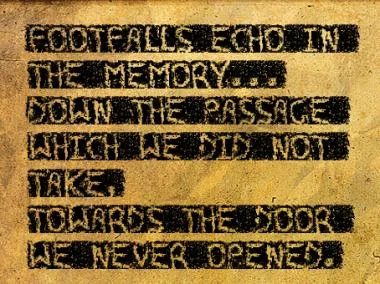 FOOTFALLS ECHO IN
THE MEMORY...
DOWN THE PASSAGE
WHICH WE DID NOT
TAKE,
TOWARDS THE DOOR
WE NEVER OPENED.